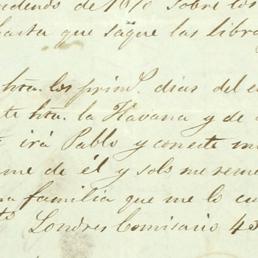 de 10% sobre los
hasta que sáque las libra
hta. los prim.s dias del e
te hta. la Havana y de
irá Pablo y conecte m
me de él y solo me reme
a familia que me lo cu
Londres Comisario 4 3